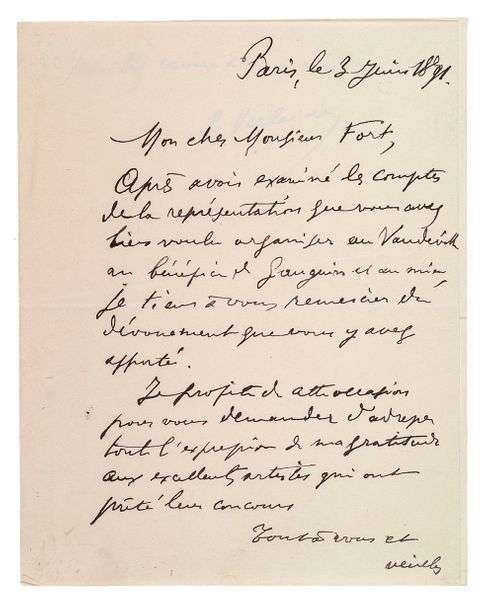 Paris, le 3 Juin 1891.
Mon cher Monsieur Fort,
Après avoir examiné les comptes
de la représentation que vous avez
bien voulu organiser au Vaudeville
au bénéfice de Gauguin et au mien
je tiens à vous remercier du
dévouement que vous y avez
apporté.
Je profite de cette occasion
pour vous demander d'adresser
toute l'expression de ma gratitude
aux excellents artistes qui ont
prêté leur concours
Tout à vous et
veuillez